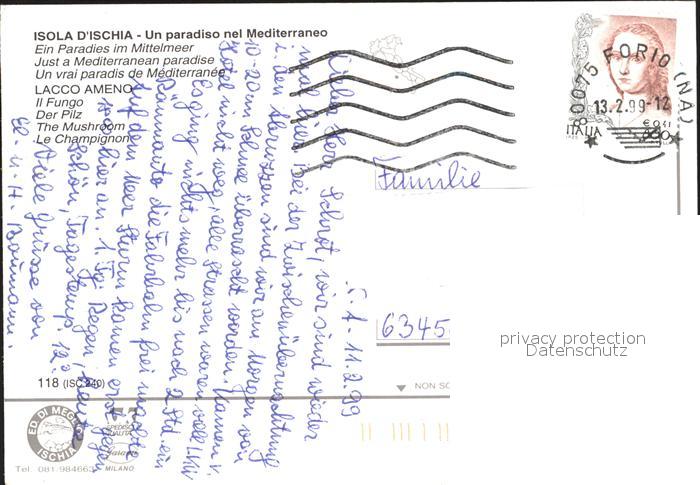 ISOLA D'ISCHIA - Un paradiso nel Mediterraneo
Ein Paradies im Mittelmeer
Just a Mediterranean paradise
Un vrai paradis de Méditerranée
LACCO AMENO
Il Fungo
Der Pilz
The Mushroom
Le Champignon
80075 FORIO (NA)
13.2.99-12
ITALIA
€ 0,41
800
Familie
6345
privacy protection
Datenschutz
118 (ISC 240)
NON SC
ED. DI MEGLIO
ISCHIA
Tel. 081.984663
MILANO
11.2.99
Lieber Herr Schrot, wir sind wieder
mal hier. Bei der Zwischenübernachtung
i. den sind wir am Morgen von
10-20 cm Schnee überrascht worden. Kamen v.
Hotel nicht weg, alle Strassen waren voll
Es ging nichts mehr bis nach 2 Std. ein
Räumauto die Fahrbahn frei machte
Auf dem Meer Sturm kamen erst gegen
hier an. 1. Tg. Regen, heute
schön, Tagestemp. 12°
Viele Grüsse von
u. H. Baumann.